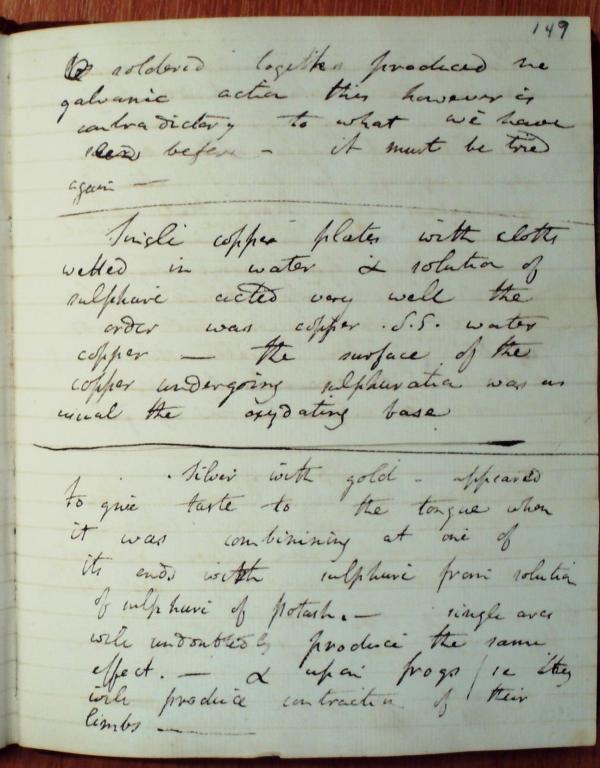 149
soldered together produced no
galvanic action this however is
contradictory to what we have
seen before - it must be tried
again —
Single copper plates with cloths
wetted in water & solution of
sulphure acted very well the
order was copper . S.S. water
copper — the surface of the
copper undergoing sulphuration was as
usual the oxydating base
Silver with gold - appeared
to give taste to the tongue when
it was combinining at one of
its ends with sulphure from solution
of sulphure of potash. — single arcs
will undoubtedly produce the same
effect. — & upon frogs / ie they
will produce contraction of their
limbs —